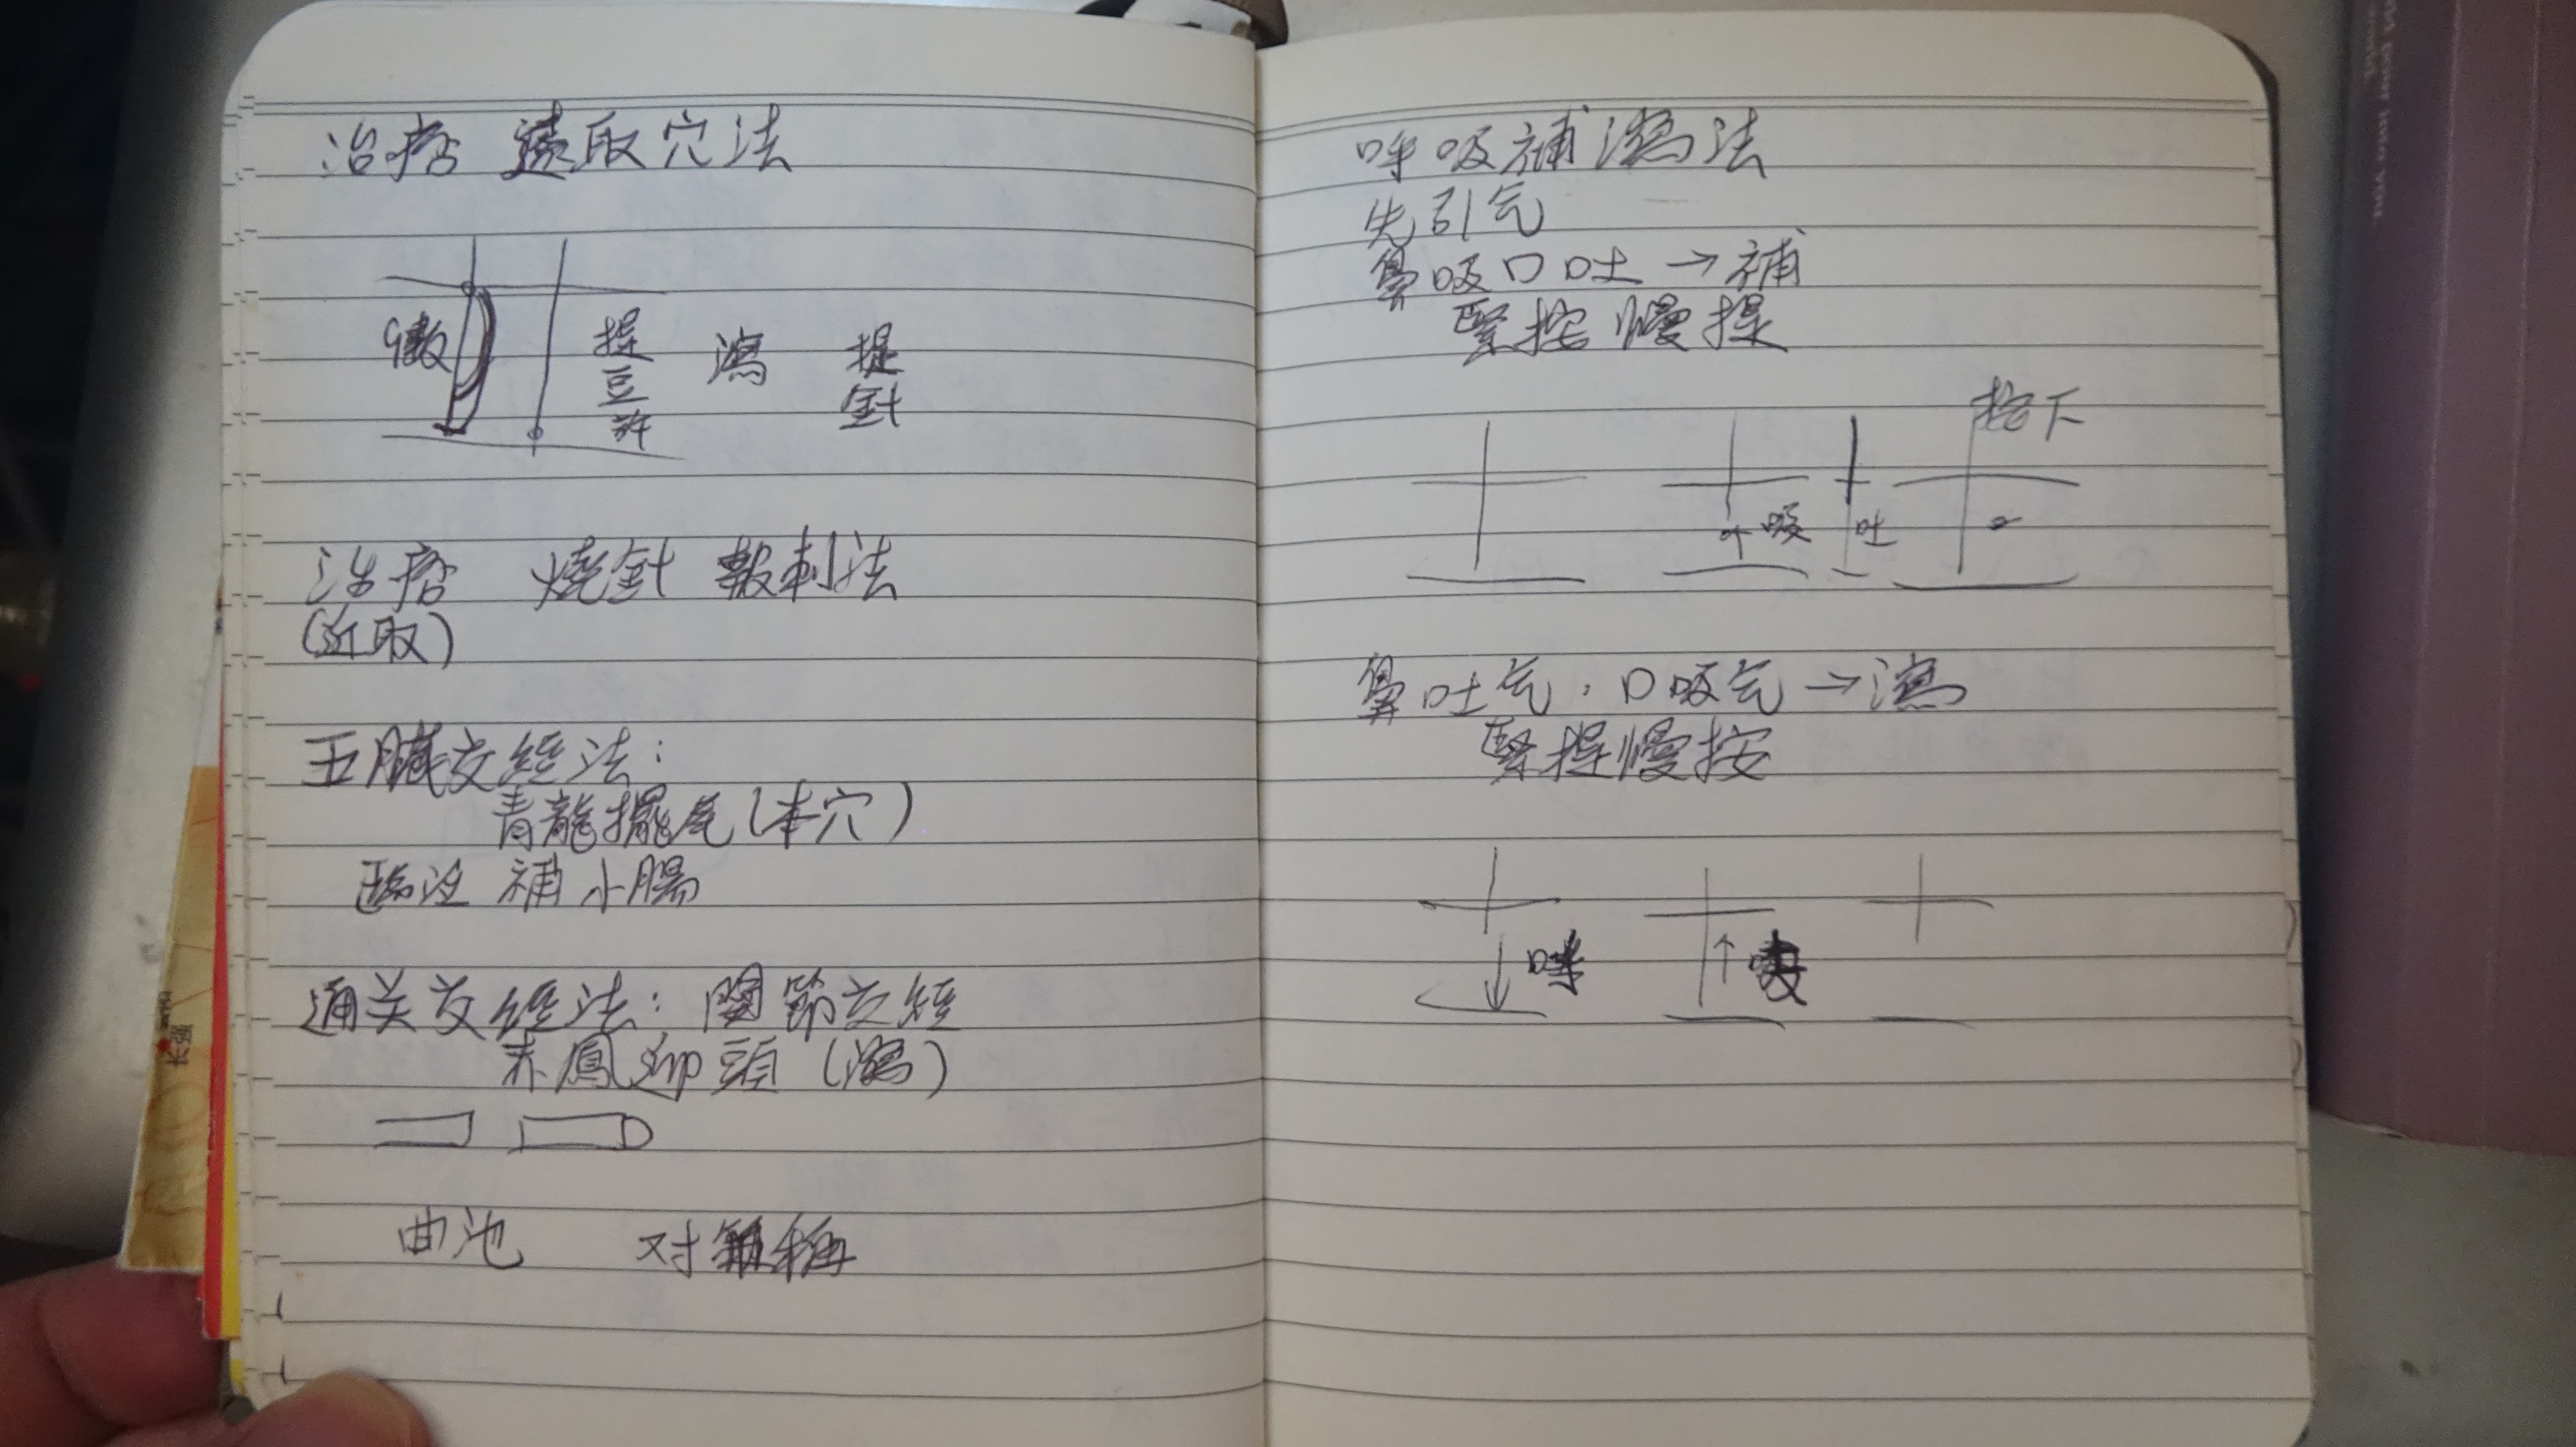 治痞 遠取穴法
微
提豆許
瀉
提針
治痞 燒針 報刺法
(近取)
五臟交經法:
青龍擺尾(本穴)
臨泣 補小腸
通关交经法: 関節交経
赤鳳迎頭 (瀉)
曲池 对
呼吸補瀉法
先引气
鼻吸口吐→補
緊按慢提
按下
吸
吐
鼻吐气,口吸气→瀉
緊提慢按
呼
吸
长强